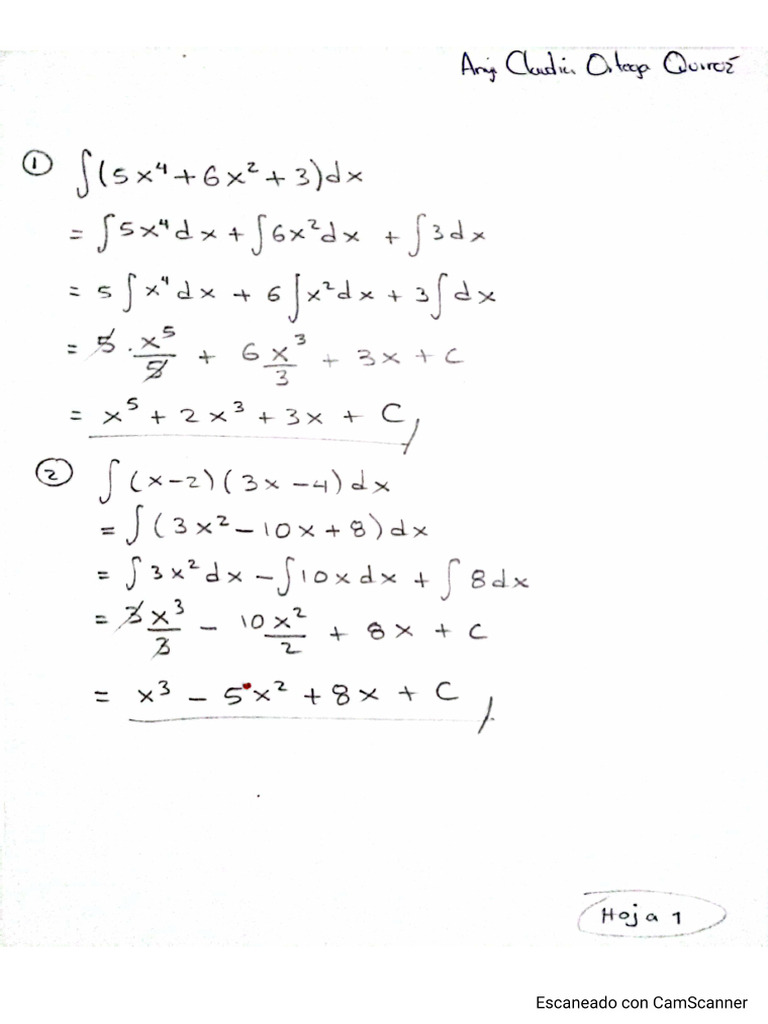 Ortega
① ∫(5x⁴+6x²+3)dx
= ∫5x⁴dx + ∫6x²dx + ∫3dx
= 5∫x⁴dx + 6∫x²dx + 3∫dx
= 5·x⁵/5 + 6x³/3 + 3x + C
= x⁵ + 2x³ + 3x + C
② ∫(x-2)(3x-4)dx
= ∫(3x²-10x+8)dx
= ∫3x²dx - ∫10xdx + ∫8dx
= 3x³/3 - 10x²/2 + 8x + C
= x³ - 5x² + 8x + C
Hoja 1
Escaneado con CamScanner